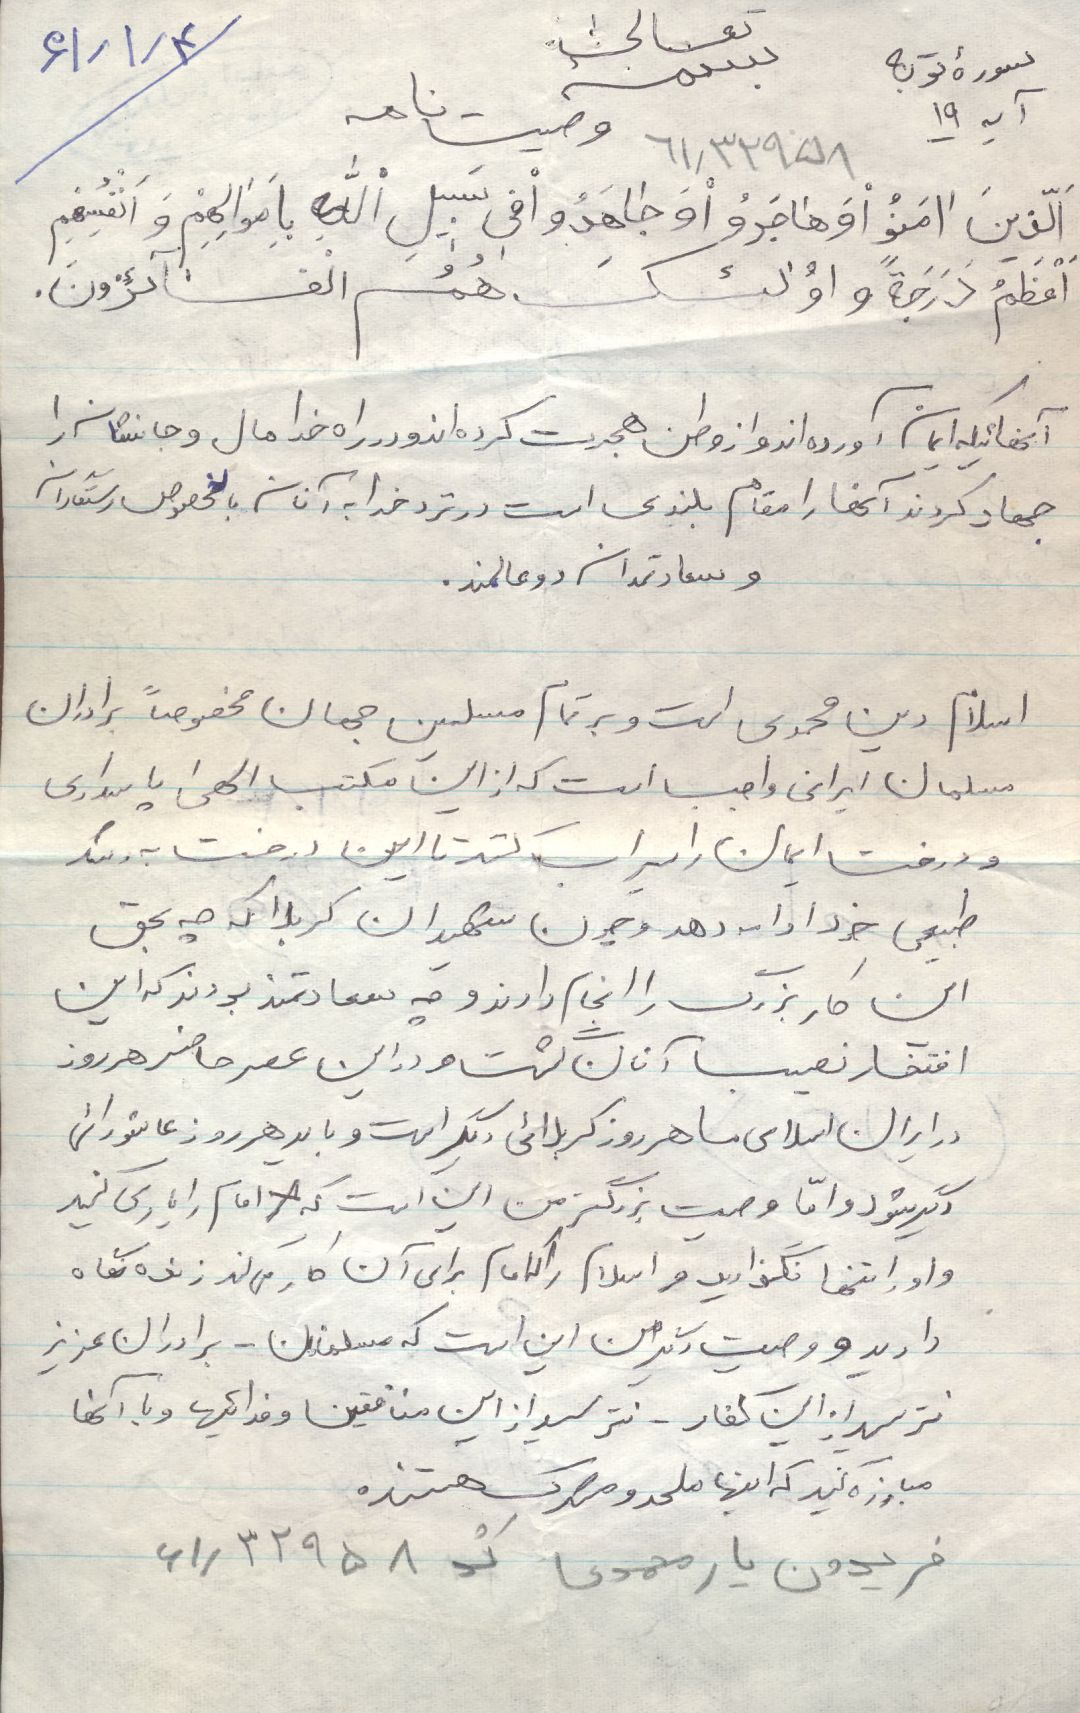 ۶۱/۱/۴
بسمه تعالی
سورهٔ توبه
آیه ۱۹
وصیت نامه
۶۱/۳۲۹۵۸
اَلَّذینَ اٰمَنُوْ اوَ هٰاجَروُ اْوَ جٰاهَدُو اْفی سَبیلِ اْللّٰهِ بِاَمْوٰالِهِمْ وَ اَنْفُسِهِمِ
اَعْظَمُ دَرَجَةً وَ اوُلٰئکَ هُمُ الْفٰآئزُونَ.
آنهائیکه ایمان آورده اند و از وطن هجرت کرده اند و در راه خدا مال و جانشان را
جهاد کردند آنها را مقام بلندی است در نزد خدا به آنان بالخصوص رستگاران
و سعادتمدان دو عالمند.
اسلام دین محمدی است و بر تمام مسلمین جهان مخصوصاً برادران
مسلمان ایرانی واجب است که از این مکتب الهی پاسداری
و درخت ایمان را سیراب کنند تا این درخت به رشد
طبیعی خود ادامه دهد و چون شهیدان کربلا که چه بحق
این کار بزرگ را انجام دادند و چه سعادتمند بودند که این
افتخار نصیب آنان گشت و در این عصر حاضر هر روز
در ایران اسلامی ما هر روز کربلائی دیگر است و باید هر روز عاشورائی
دیگر شود و امّا وصیت بزرگتر من این است که امام را یاری کنید
و او را تنها نگذارید و اسلام را که امام برای آن کار می‌کند زنده نگاه
دارید و وصیت دیگر من این است که مسلمانان - برادران عزیز
نترسید از این کفار - نترسید از این منافقین و فدائیها و با آنها
مبارزه کنید که اینها ملحد و مشرک هستند
فریدون یار محمدی کد ۶۱/۳۲۹۵۸